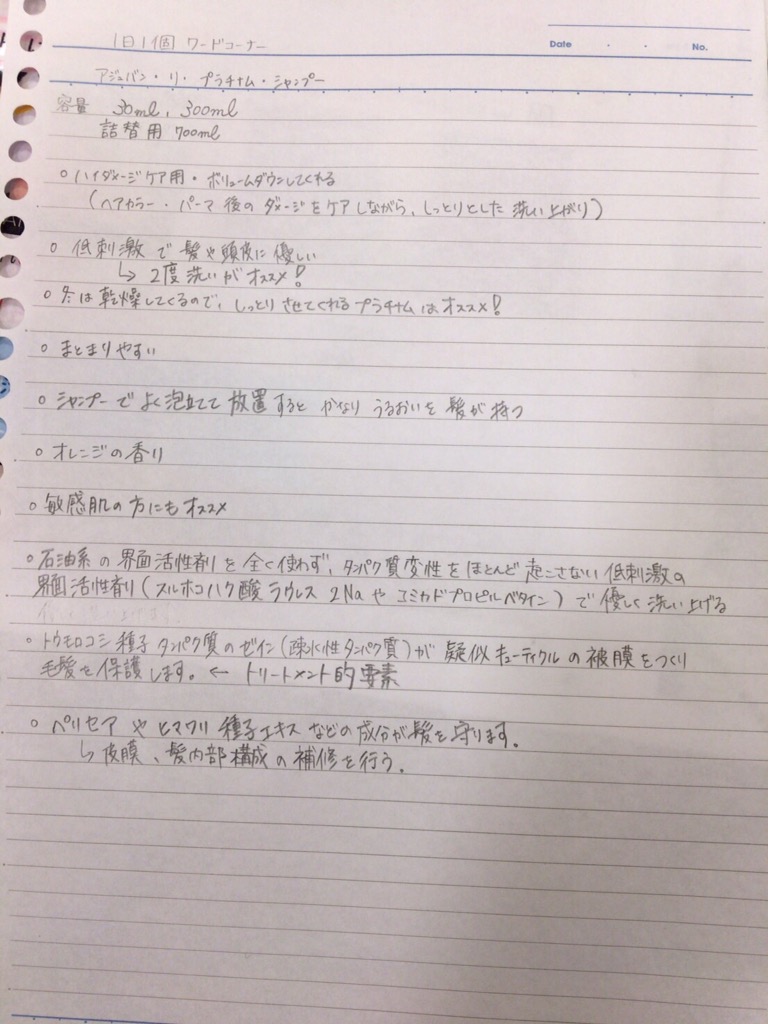 1日1個 ワードコーナー
Date ・ ・ No.
アジュバン・リ・プラチナム・シャンプー
容量 30ml, 300ml
詰替用 700ml
○ ハイダメージケア用・ボリュームダウンしてくれる
(ヘアカラー・パーマ後のダメージをケアしながら、しっとりとした洗い上がり)
○ 低刺激で髪や頭皮に優しい
↳ 2度洗いがオススメ!
○ 冬は乾燥してくるので、しっとりさせてくれるプラチナムはオススメ!
○ まとまりやすい
○ シャンプーでよく泡立てて放置するとかなりうるおいを髪が持つ
○ オレンジの香り
○ 敏感肌の方にもオススメ
○ 石油系の界面活性剤を全く使わず、タンパク質変性をほとんど起こさない低刺激の
界面活性剤(スルホコハク酸ラウレス2Naやコミカドプロピルベタイン)で優しく洗い上げる
○ トウモロコシ種子タンパク質のゼイン(疎水性タンパク質)が疑似キューティクルの被膜をつくり
毛髪を保護します。← トリートメント的要素
○ ペリセアやヒマワリ種子エキスなどの成分が髪を守ります。
↳ 皮膜、髪内部構成の補修を行う。